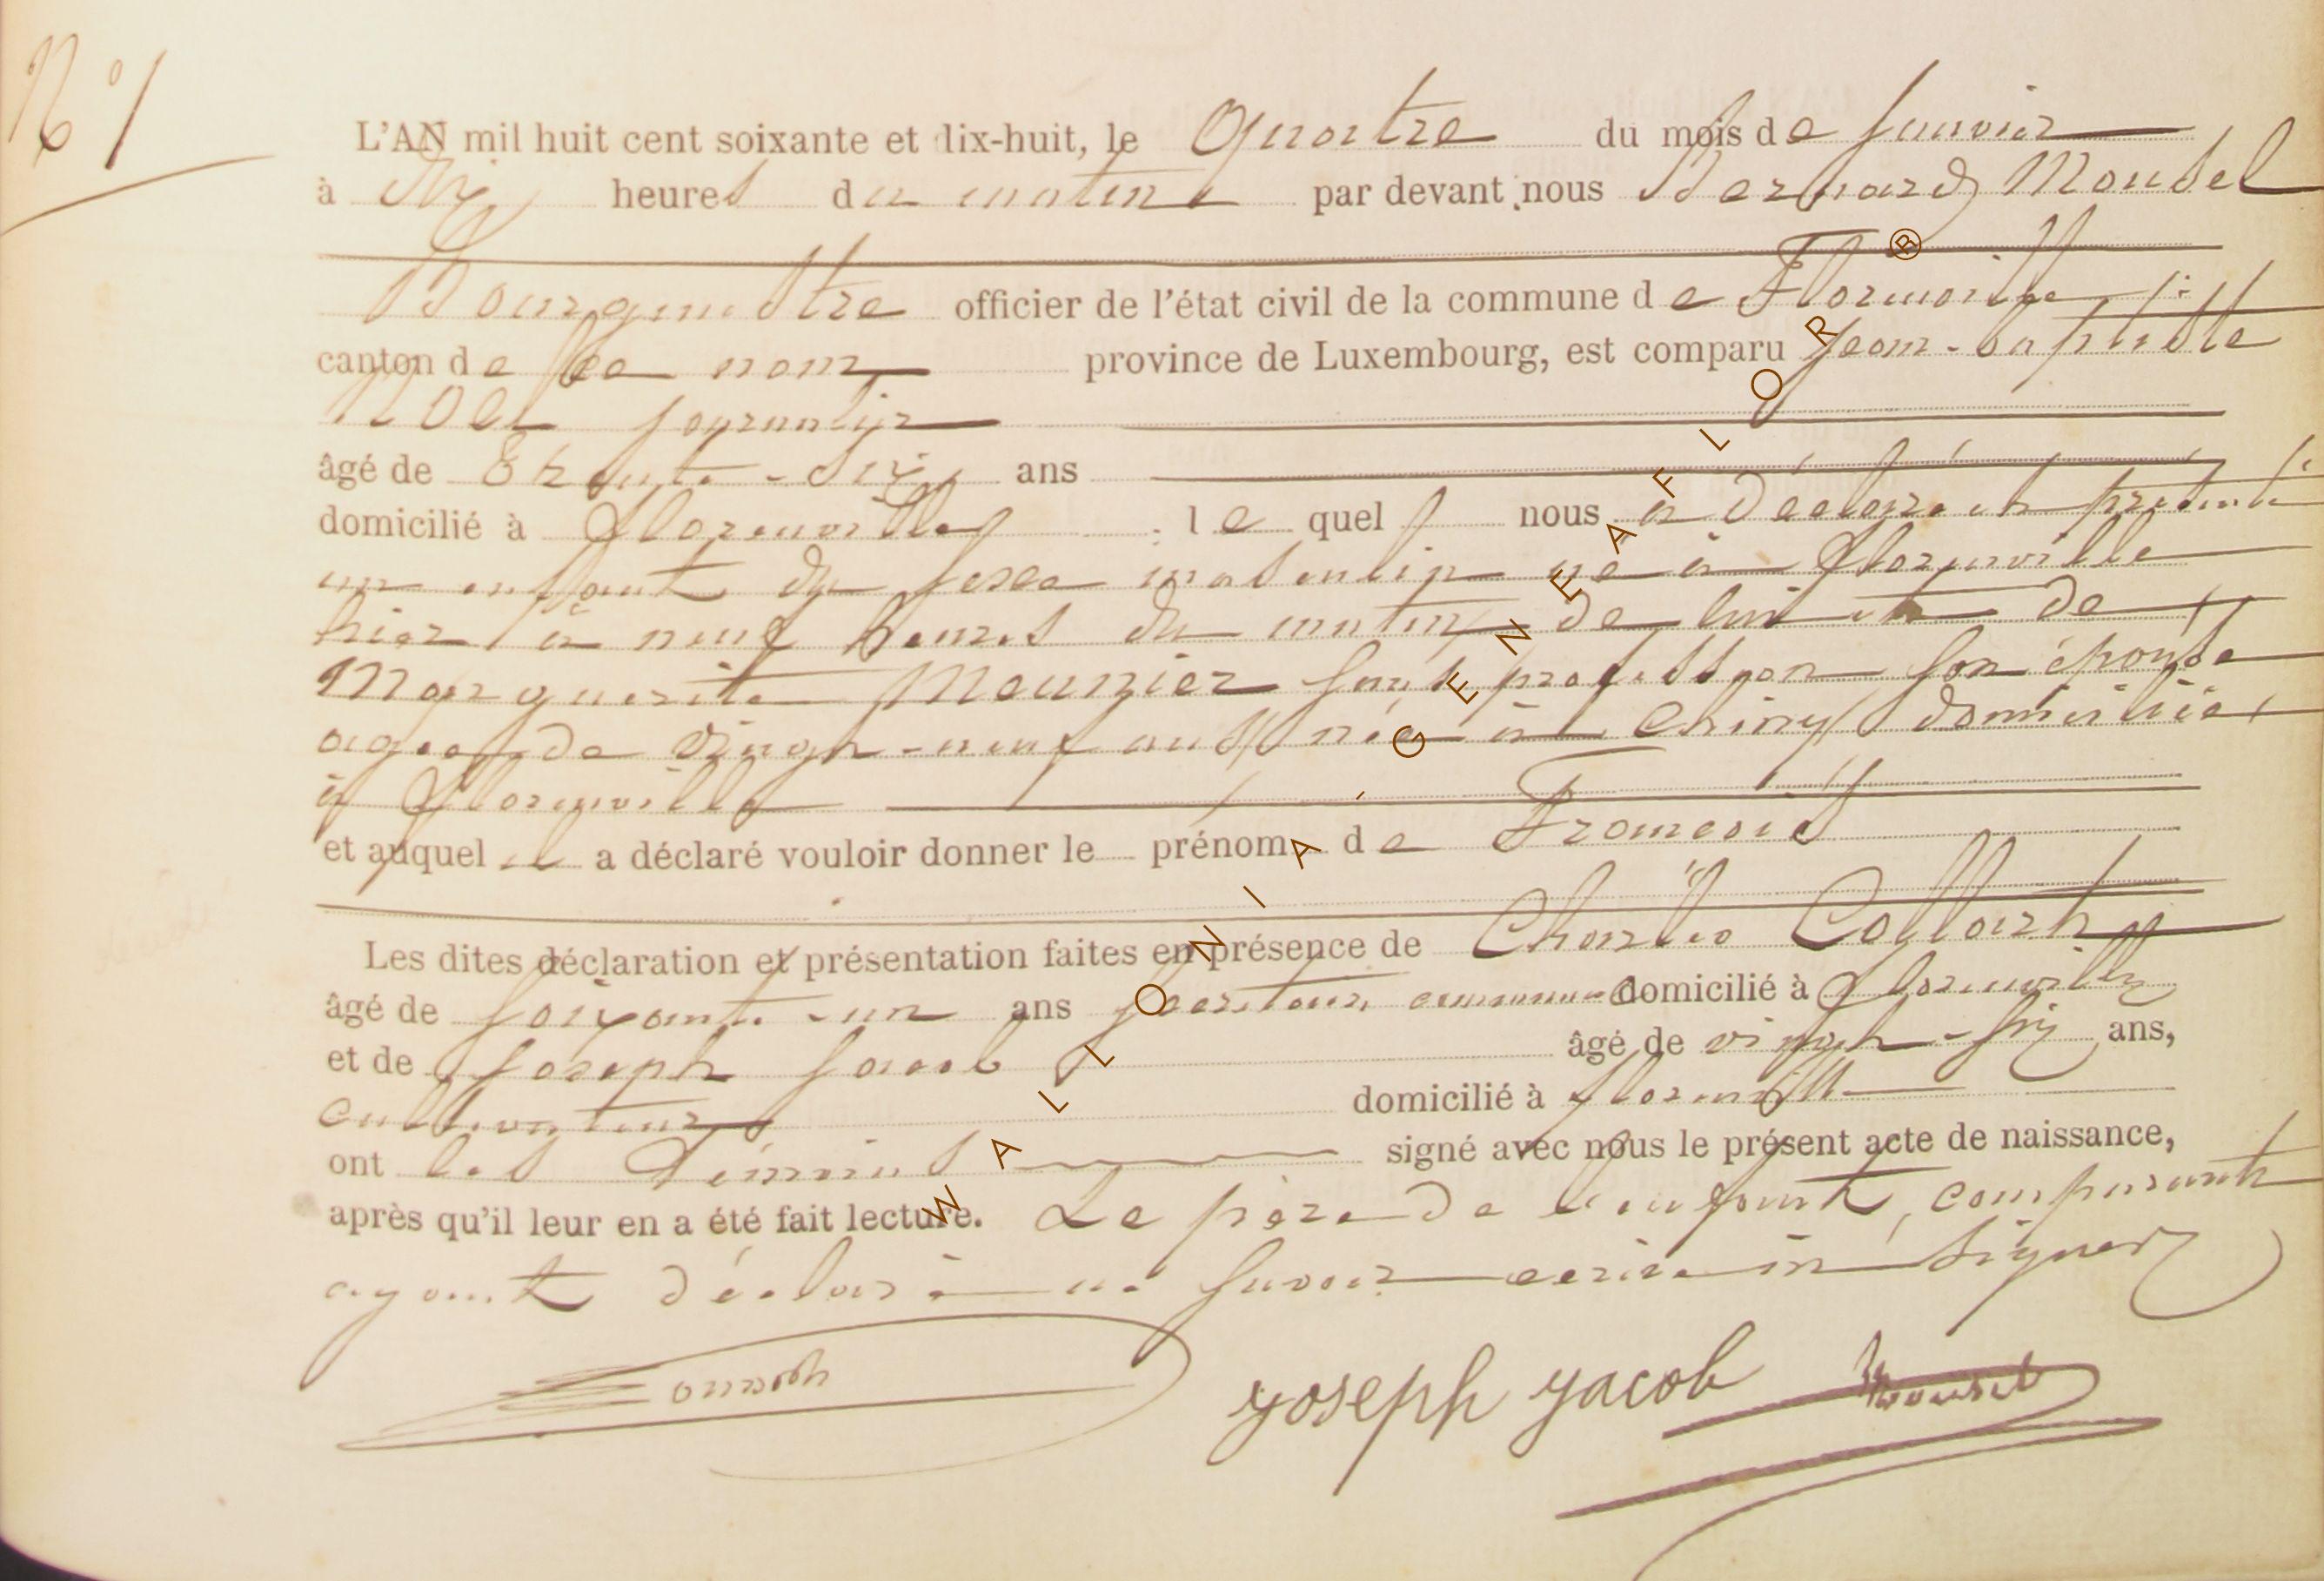 N° 1
L'AN mil huit cent soixante et dix-huit, le Quatre du mois de Janvier
à dix heures du matin par devant nous Bernard Mousel
Bourgmestre officier de l'état civil de la commune de Florenville
canton de ce nom province de Luxembourg, est comparu Jean-baptiste
journalier
âgé de trente-six ans
domicilié à Florenville lequel nous a déclaré et présenté
un enfant du sexe masculin né à Florenville
hier à neuf heures du matin de lui et de
Marguerite Meunier sans profession son épouse
agée de vingt-neuf ans née à Chiny domiciliée
à Florenville
et auquel il a déclaré vouloir donner le prénom de François
Les dites déclaration et présentation faites en présence de Charles
âgé de soixante-un ans secrétaire communal domicilié à Florenville
et de Joseph Jacob âgé de vingt-six ans,
cultivateur domicilié à Florenville
ont les témoins signé avec nous le présent acte de naissance,
après qu'il leur en a été fait lecture. Le père de l'enfant, comparant
ayant déclaré ne savoir écrire ni signer
Joseph Jacob Mousel
WALLONIA GENEAFLOR ®